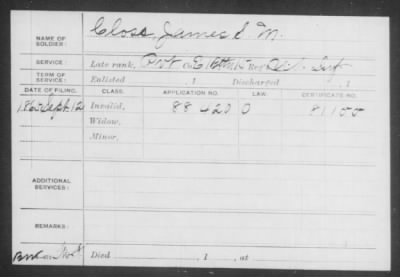 NAME OF SOLDIER: Closs, James M.
SERVICE: Late rank, Pvt Co. E, Reg't Inf
TERM OF SERVICE: Enlisted , 1 Discharged , 1
DATE OF FILING. CLASS. APPLICATION NO. LAW. CERTIFICATE NO.
1865 Sept. 12 Invalid, 88420 81100
Widow,
Minor,
ADDITIONAL SERVICES:
REMARKS:
Died , 1 , at